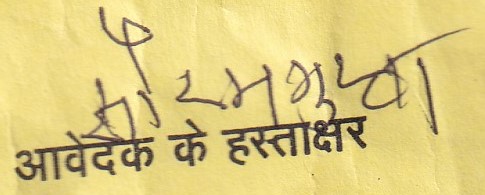 सौरभ गुप्ता
आवेदक के हस्ताक्षर